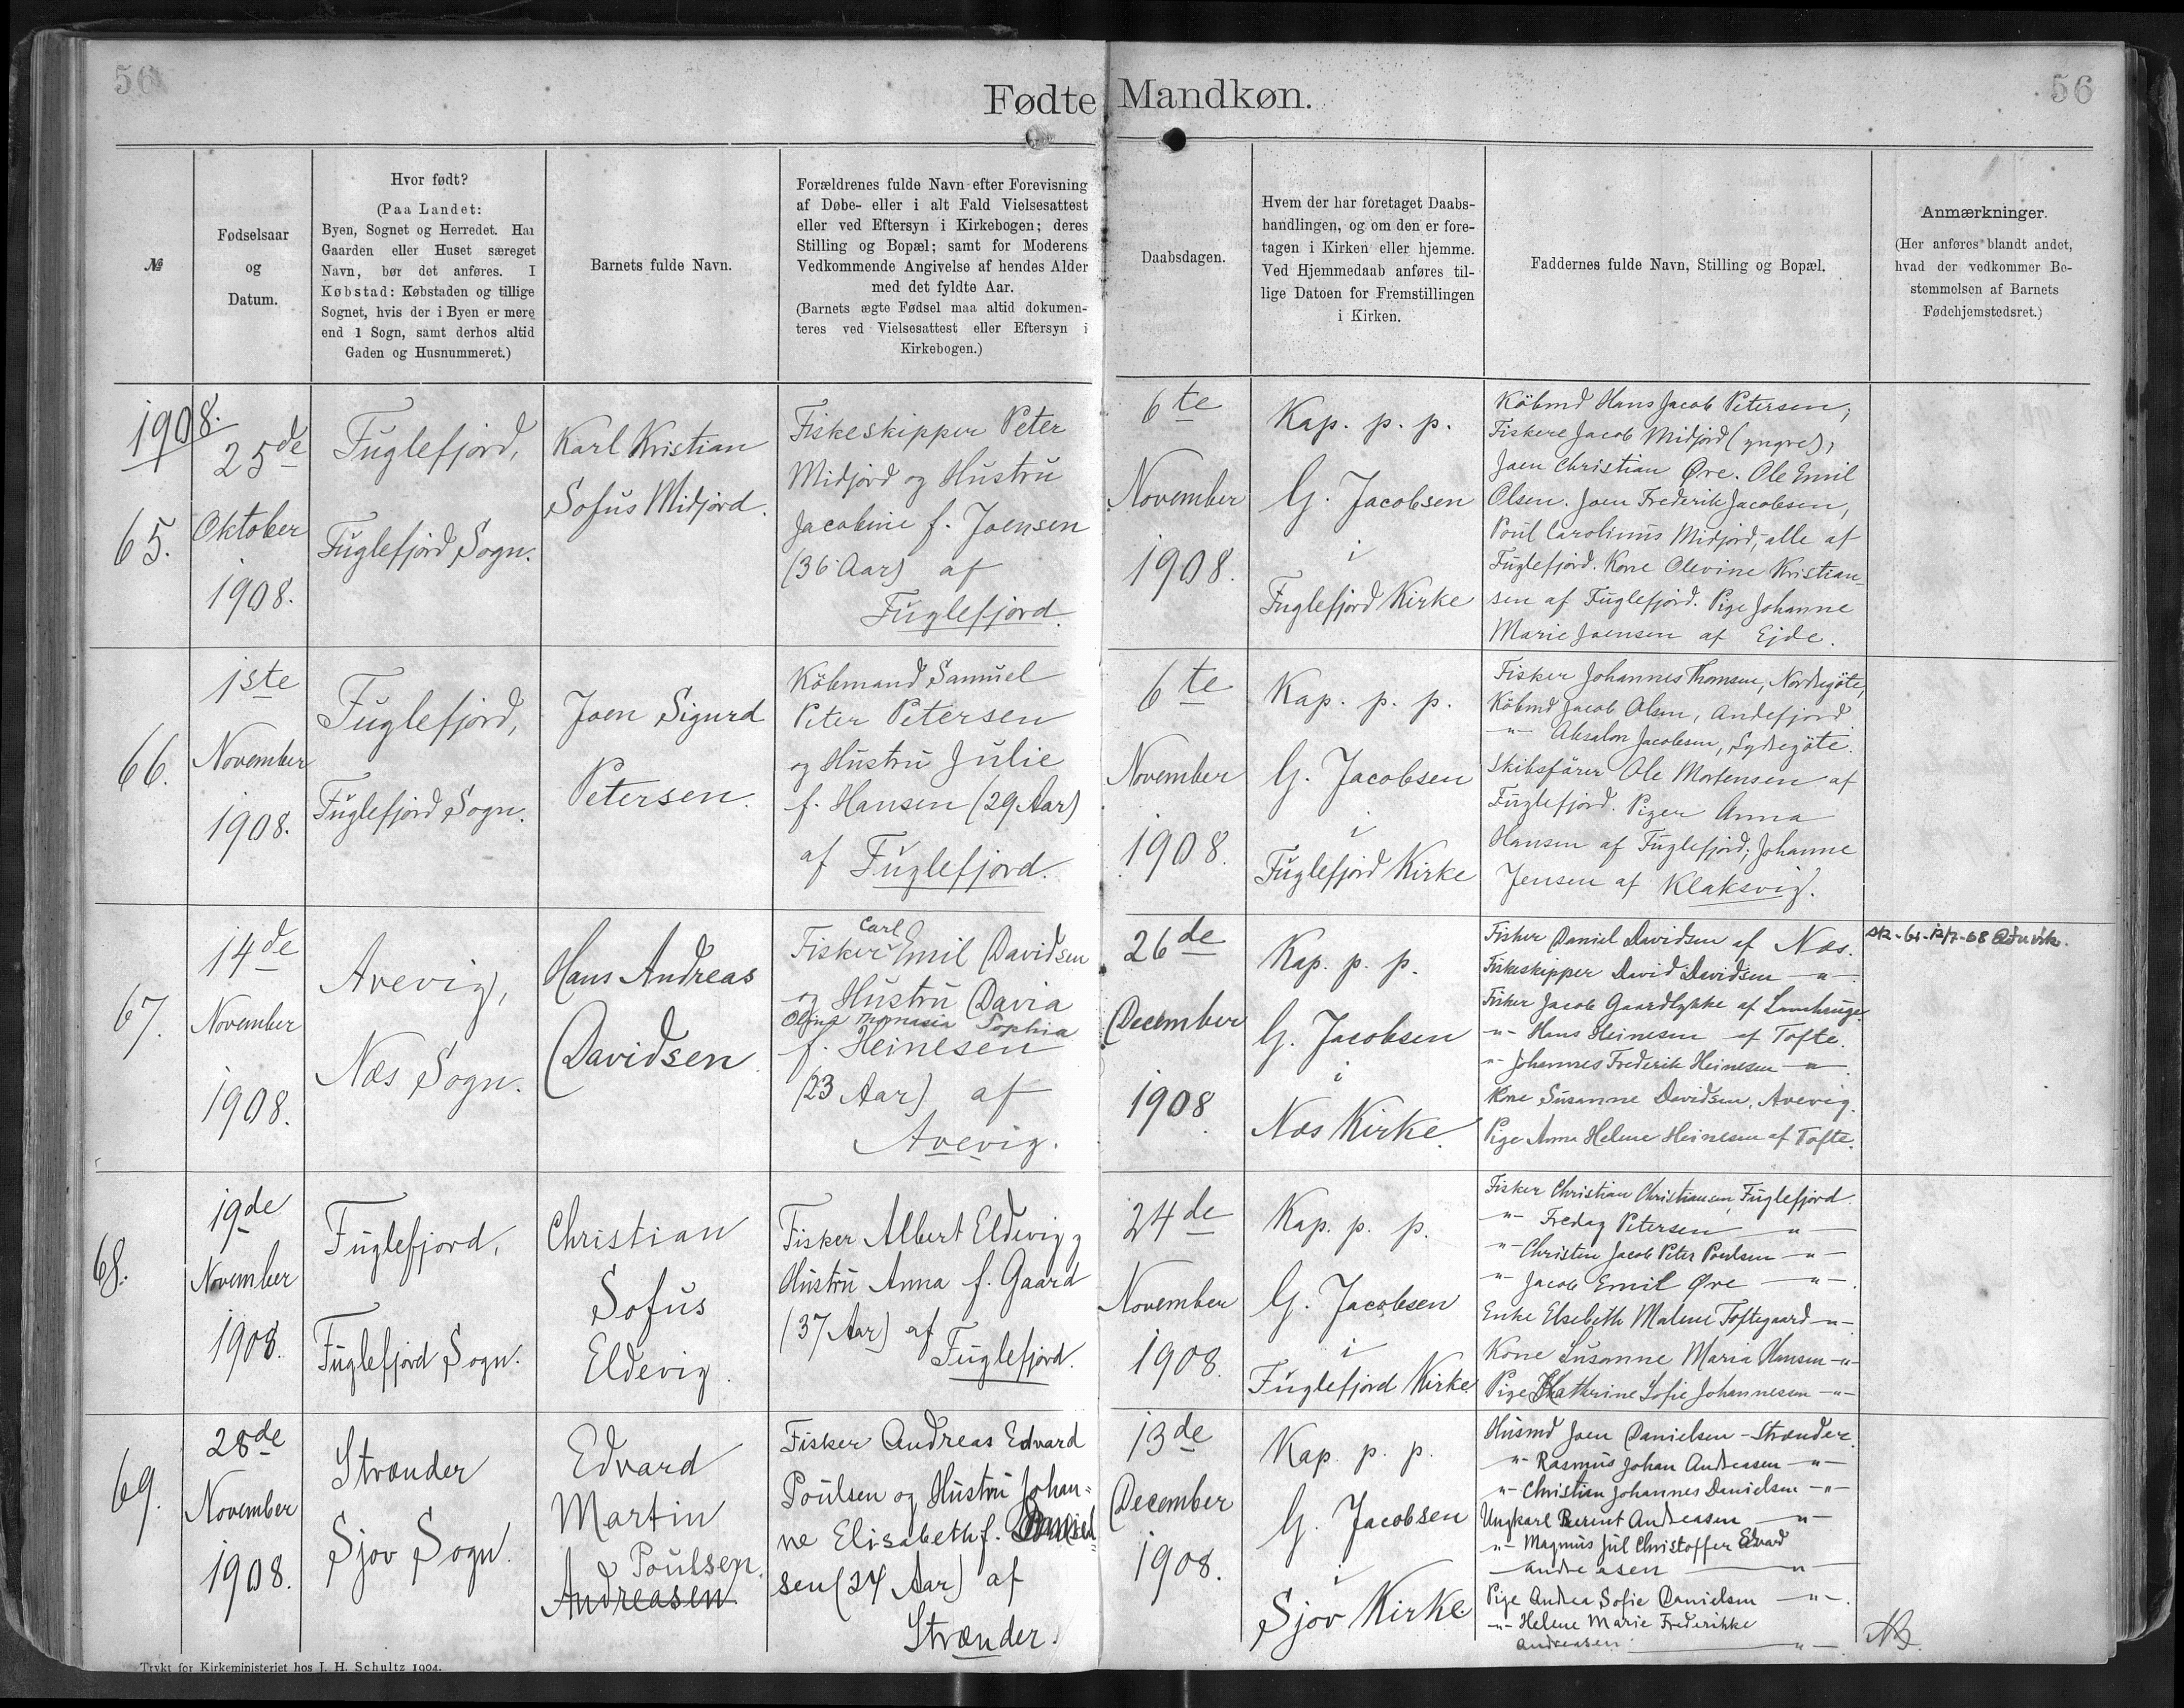 56
56
Fødte Mandkøn.
№
Fødselsaar
og
Datum.
Hvor født?
(Paa Landet:
Byen, Sognet og Herredet. Har
Gaarden eller Huset særeget
Navn, bør det anføres. I
Købstad: Købstaden og tillige
Sognet, hvis der i Byen er mere
end 1 Sogn, samt derhos altid
Gaden og Husnummeret.)
Barnets fulde Navn.
Forældrenes fulde Navn efter Forevisning
af Døbe- eller i alt Fald Vielsesattest
eller ved Eftersyn i Kirkebogen; deres
Stilling og Bopæl; samt for Moderens
Vedkommende Angivelse af hendes Alder
med det fyldte Aar.
(Barnets ægte Fødsel maa altid dokumen-
teres ved Vielsesattest eller Eftersyn i
Kirkebogen.)
Daabsdagen.
Hvem der har foretaget Daabs-
handlingen, og om den er fore-
tagen i Kirken eller hjemme.
Ved Hjemmedaab anføres til-
lige Datoen for Fremstillingen
i Kirken.
Faddernes fulde Navn, Stilling og Bopæl.
Anmærkninger.
(Her anføres blandt andet,
hvad der vedkommer Be-
stemmelsen af Barnets
Fødehjemstedsret.)
1908.
65.
25de
Oktober
1908.
Fuglefjord,
Fuglefjord Sogn.
Karl Kristian
Sofus Midjord.
Fiskeskipper Peter
Midjord og Hustru
Jacobine f. Joensen
(36 Aar) af
Fuglefjord.
6te
November
1908.
Kap. p. p.
G. Jacobsen
i
Fuglefjord Kirke
Købmd Hans Jacob Petersen,
Fiskere Jacob Midjord (yngre),
Joen Christian Øre. Ole Emil
Olsen. Joen Frederik Jacobsen,
Poul Carolinus Midjord, alle af
Fuglefjord. Kone Olevine Kristian-
sen af Fuglefjord. Pige Johanne
Marie Joensen af Ejde.
66.
1ste
November
1908.
Fuglefjord,
Fuglefjord Sogn.
Joen Sigurd
Petersen.
Købmand Samuel
Peter Petersen
og Hustru Julie
f. Hansen (29 Aar)
af Fuglefjord.
6te
November
1908.
Kap. p. p.
G. Jacobsen
i
Fuglefjord Kirke
Fisker Johannes Thomsen, Nordregøte,
Købmd Jacob Olsen, Andefjord.
-"- Absalon Jacobsen, Sydregøte.
Skibsfører Ole Mortensen af
Fuglefjord. Piger Anna
Hansen af Fuglefjord; Johanne
Jensen af Klaksvig.
67.
14de
November
1908.
Avevig,
Næs Sogn.
Hans Andreas
Davidsen.
Carl
Fisker Emil Davidsen
og Hustru Davia
Olina Thomasia Sophia
f. Heinesen
(23 Aar) af
Avevig.
26de
December
1908.
Kap. p. p.
G. Jacobsen
i
Næs Kirke.
Fisker Daniel Davidsen af Næs.
Fiskeskipper David Davidsen -"-
Fisker Jacob Gaardlykke af
-"- Hans Heinesen af Tofte.
-"- Johannes Frederik Heinesen -"-.
Kone Susanne Davidsen, Avevig.
Pige Anna Helene Heinesen af Tofte.
68.
19de
November
1908.
Fuglefjord,
Fuglefjord Sogn.
Christian
Sofus
Eldevig.
Fisker Albert Eldevig og
Hustru Anna f. Gaard
(37 Aar) af
Fuglefjord.
24de
November
1908.
Kap. p. p.
G. Jacobsen
i
Fuglefjord Kirke
Fisker Christian Christiansen, Fuglefjord.
-"- Fredag Petersen -"-
-"- Christen Jacob Peter Poulsen -"-
-"- Jacob Emil Øre -"-.
Enke Elsebeth Malene Toftegaard -"-
Kone Susanne Maria Hansen -"-
Pige Kathrine Sofie Johannesen -"-
69.
28de
November
1908.
Strænder
Sjov Sogn.
Edvard
Martin
Poulsen.
Andreasen.
Fisker Andreas Edvard
Poulsen og Hustru Johan-
ne Elisabeth f.
sen (24 Aar) af
Strænder.
13de
December
1908.
Kap. p. p.
G. Jacobsen
i
Sjov Kirke
Husmd Joen Danielsen - Strænder.
-"- Rasmus Johan Andreasen -"-
-"- Christian Johannes Danielsen -"-
Ungkarl Berint Andreasen -"-
-"- Magnus Jul Christoffer Edvard
Andreasen -"-
Pige Andrea Sofie Danielsen -"-.
-"- Helene Marie Frederikke
Andreasen -"-
Trykt for Kirkeministeriet hos J. H. Schultz 1904.